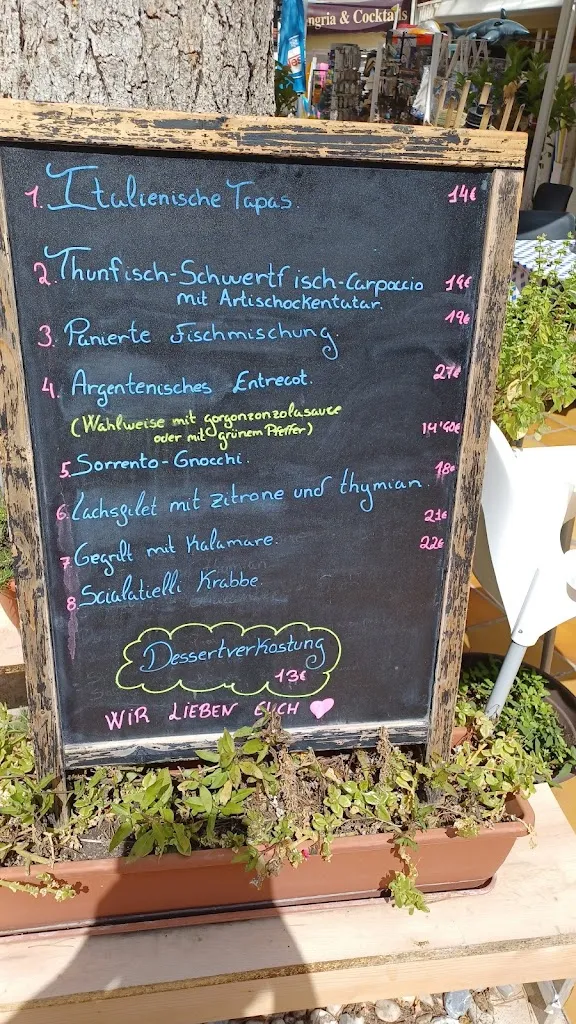 ngria & Cocktails
1. Italienische Tapas. 14€
2. Thunfisch-Schwertfisch-Carpaccio 19€
mit Artischockentatar.
3. Panierte Fischmischung. 19€
4. Argentenisches Entrecot. 27€
(Wahlweise mit gorgonzonzolasauce
oder mit grünem Pfeffer)
5. Sorrento-Gnocchi. 14'90€
6. Lachsgilet mit zitrone und thymian. 18€
7 Gegrilt mit Kalamare. 21€
8. Scialatielli Krabbe. 22€
Dessertverkostung
13€
WIR LIEBEN EUCH